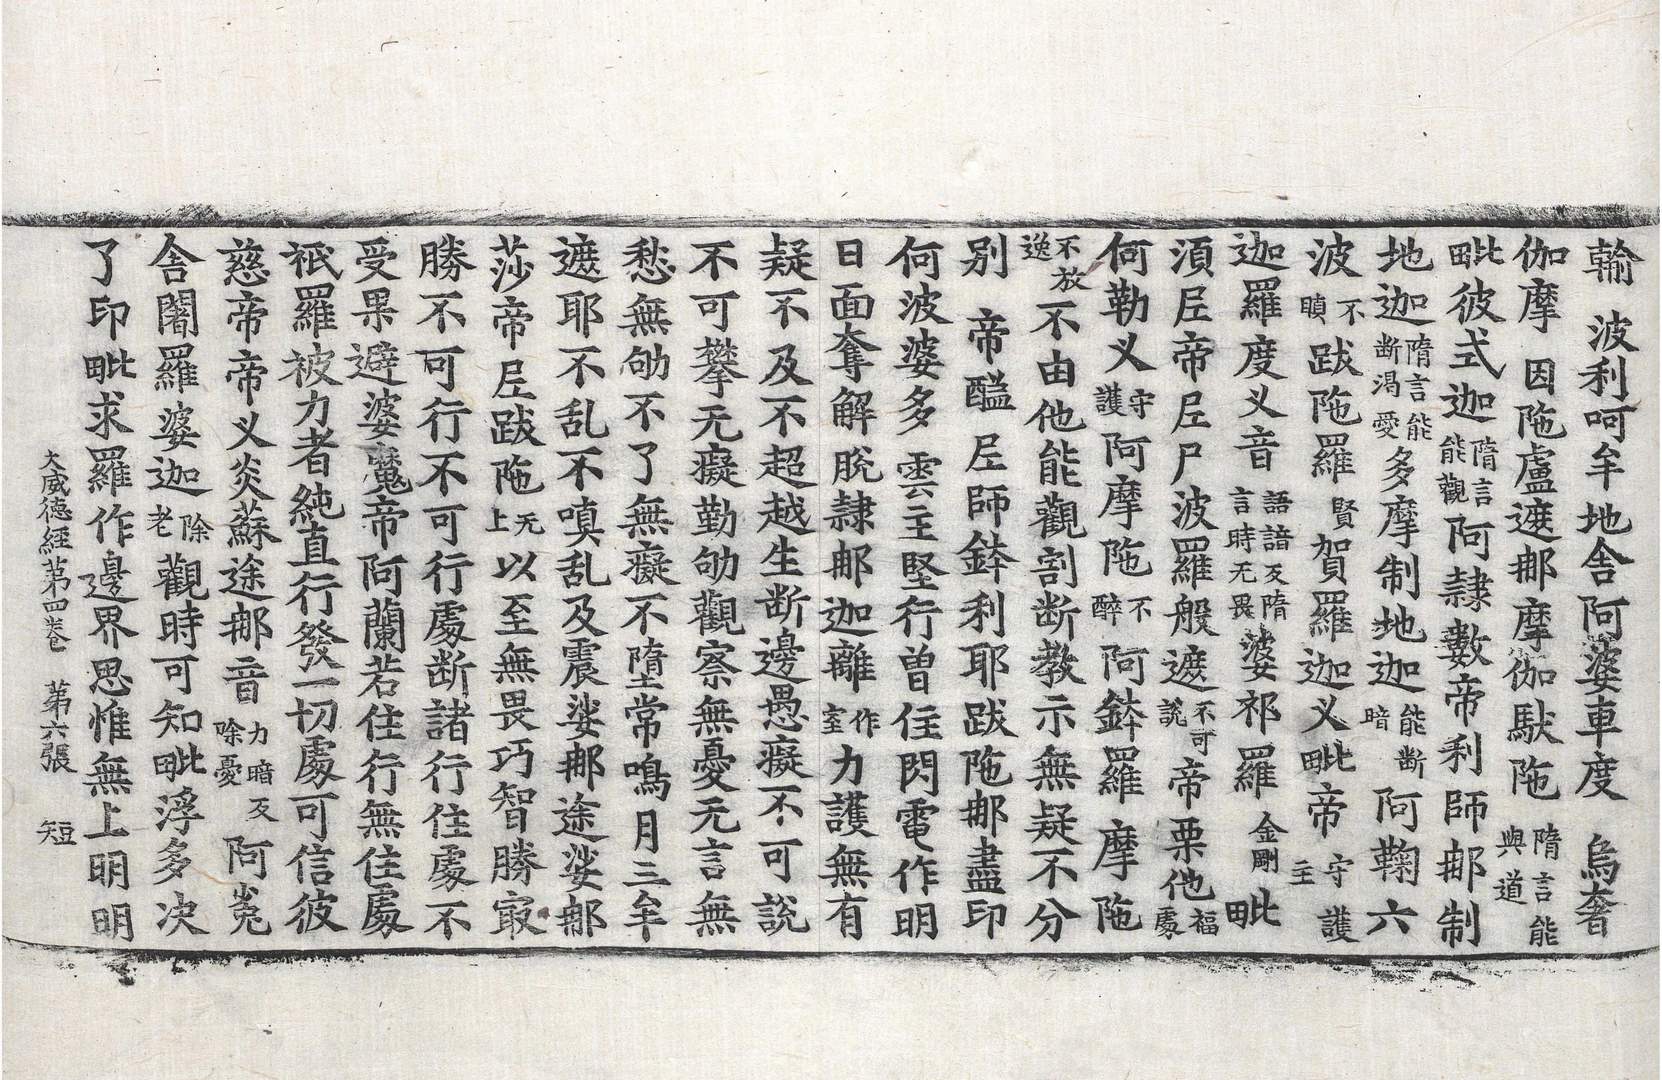 輸 波利呵牟地舍阿婆車度 烏奢
伽摩 因陁盧遮那摩伽䭾陁 隋言能與道
毗彼式迦隋言能觀阿隷數帝利師那制
地迦隋言能断渴愛多摩制地迦能断暗阿鞠六
波不瞋跋陁羅賢賀羅迦义毗帝守護主
迦羅度义音語諳反隋言時无畏婆祁羅金剛毗
湏𡰱帝𡰱尸波羅般遮不可說帝栗他福處
何勒义守護阿摩陁不醉阿鉢羅摩陁
不放逸不由他能觀割断教示無疑不分
別 帝醯𡰱師鉢利耶跋陁那盡印
何波婆多雲主堅行曽住閃電作明
日面奪解脫隷那迦離作室力護無有
疑不及不超越生断邊愚癡不可說
不可攀无癡勤劬觀察無憂无言無
愁無劬不了無癡不墮常鳴月三牟
遮耶不乱不嗔乱及震娑那途娑那
莎帝𡰱跋陁无上以至無畏巧智勝㝡
勝不可行不可行處断諸行住處不
受果避婆魔帝阿蘭若住行無住處
祇羅被力者純直行發一切處可信彼
慈帝帝义炎蘇途那音力暗反除憂阿㝹
舍闍羅婆迦除老觀時可知毗浮多决
了印毗求羅作邊界思惟無上明明
大威德經苐四卷 苐六張 短